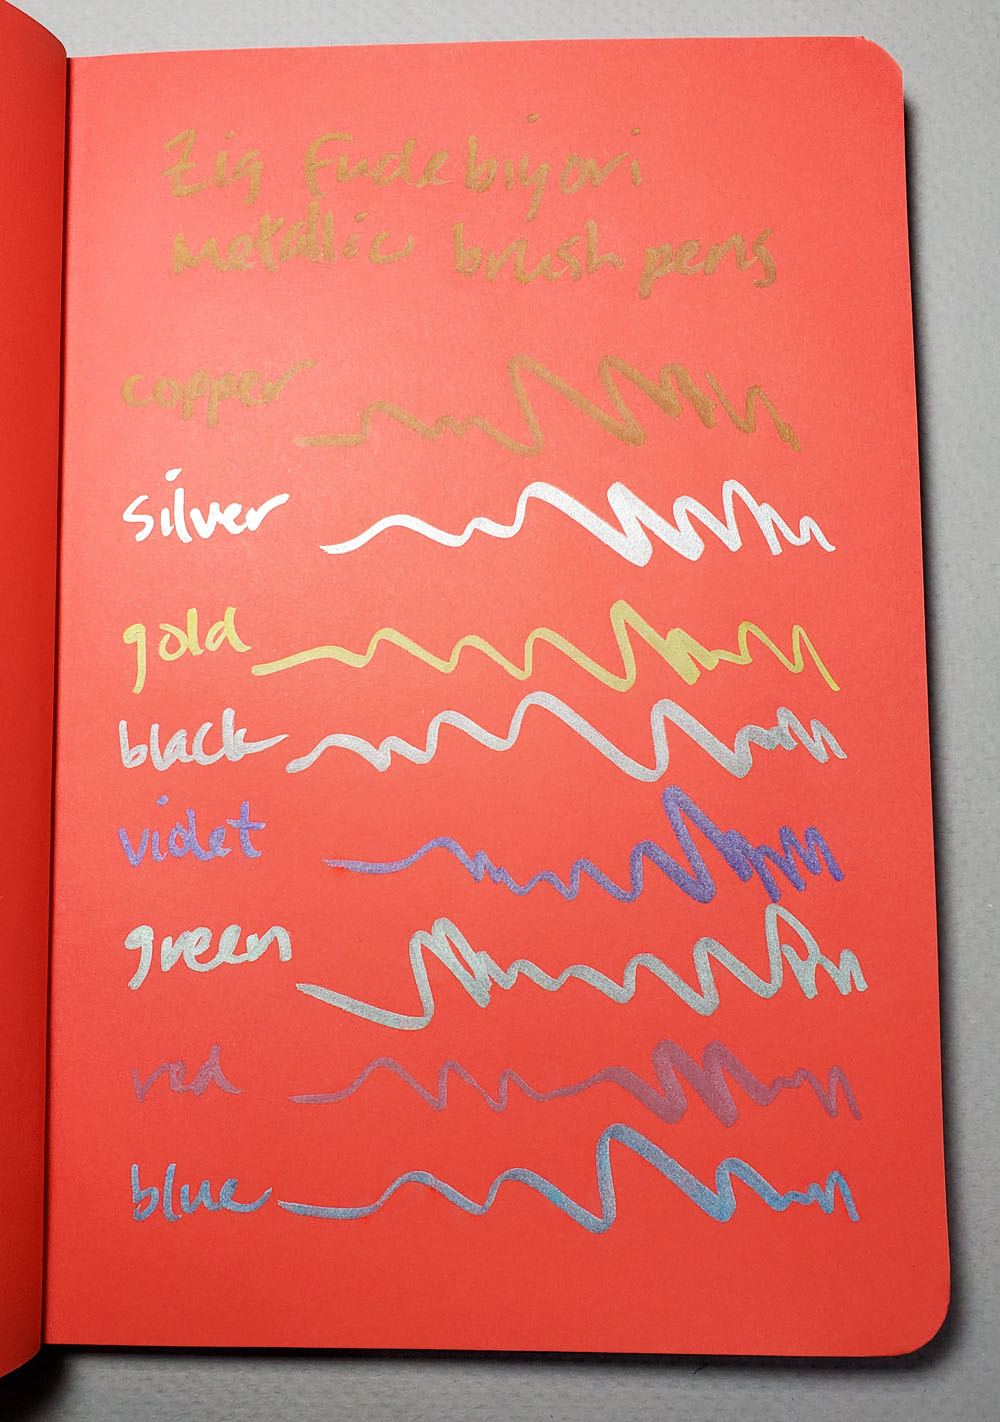 Zig Fudebiyori
Metallic brush pens
copper
silver
gold
black
violet
green
red
blue